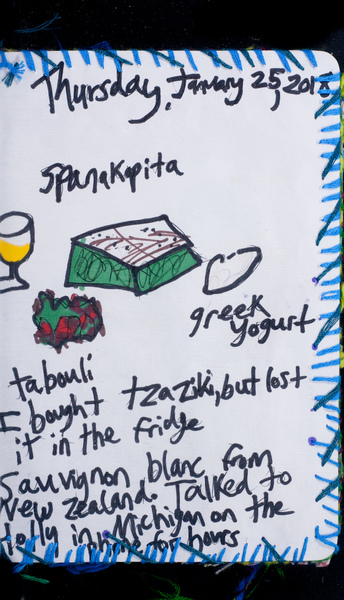 Thursday, January 25, 2018
Spanakopita
greek
yogurt
tabouli
I bought tzaziki, but lost
it in the fridge
Sauvignon blanc from
New Zealand. Talked to
in Michigan on the
for hours